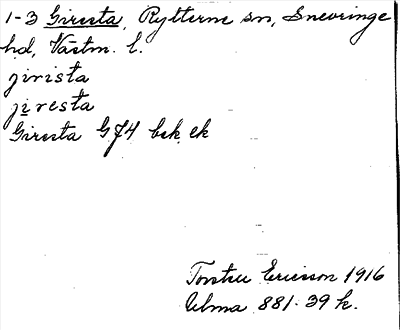 1-3 Giresta, Rytterne sn, Snevringe
hd, Västm. l.
jirista
jiresta
Giresta G74 bek. ek
Torsten Ericsson 1916
Ulma 881:39 k.